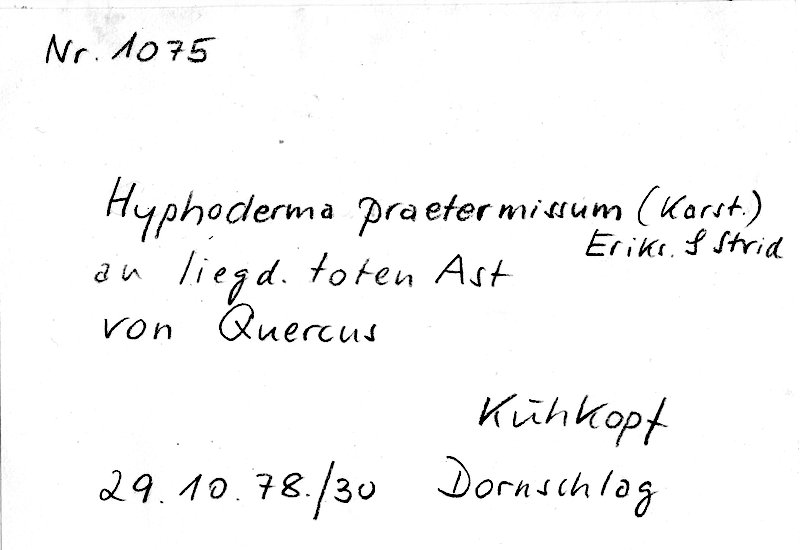 Nr. 1075
Hyphoderma praetermissum (Karst.)
Eriks. & Strid
an liegd. toten Ast
von Quercus
Kühkopf
29.10.78./30 Dornschlag